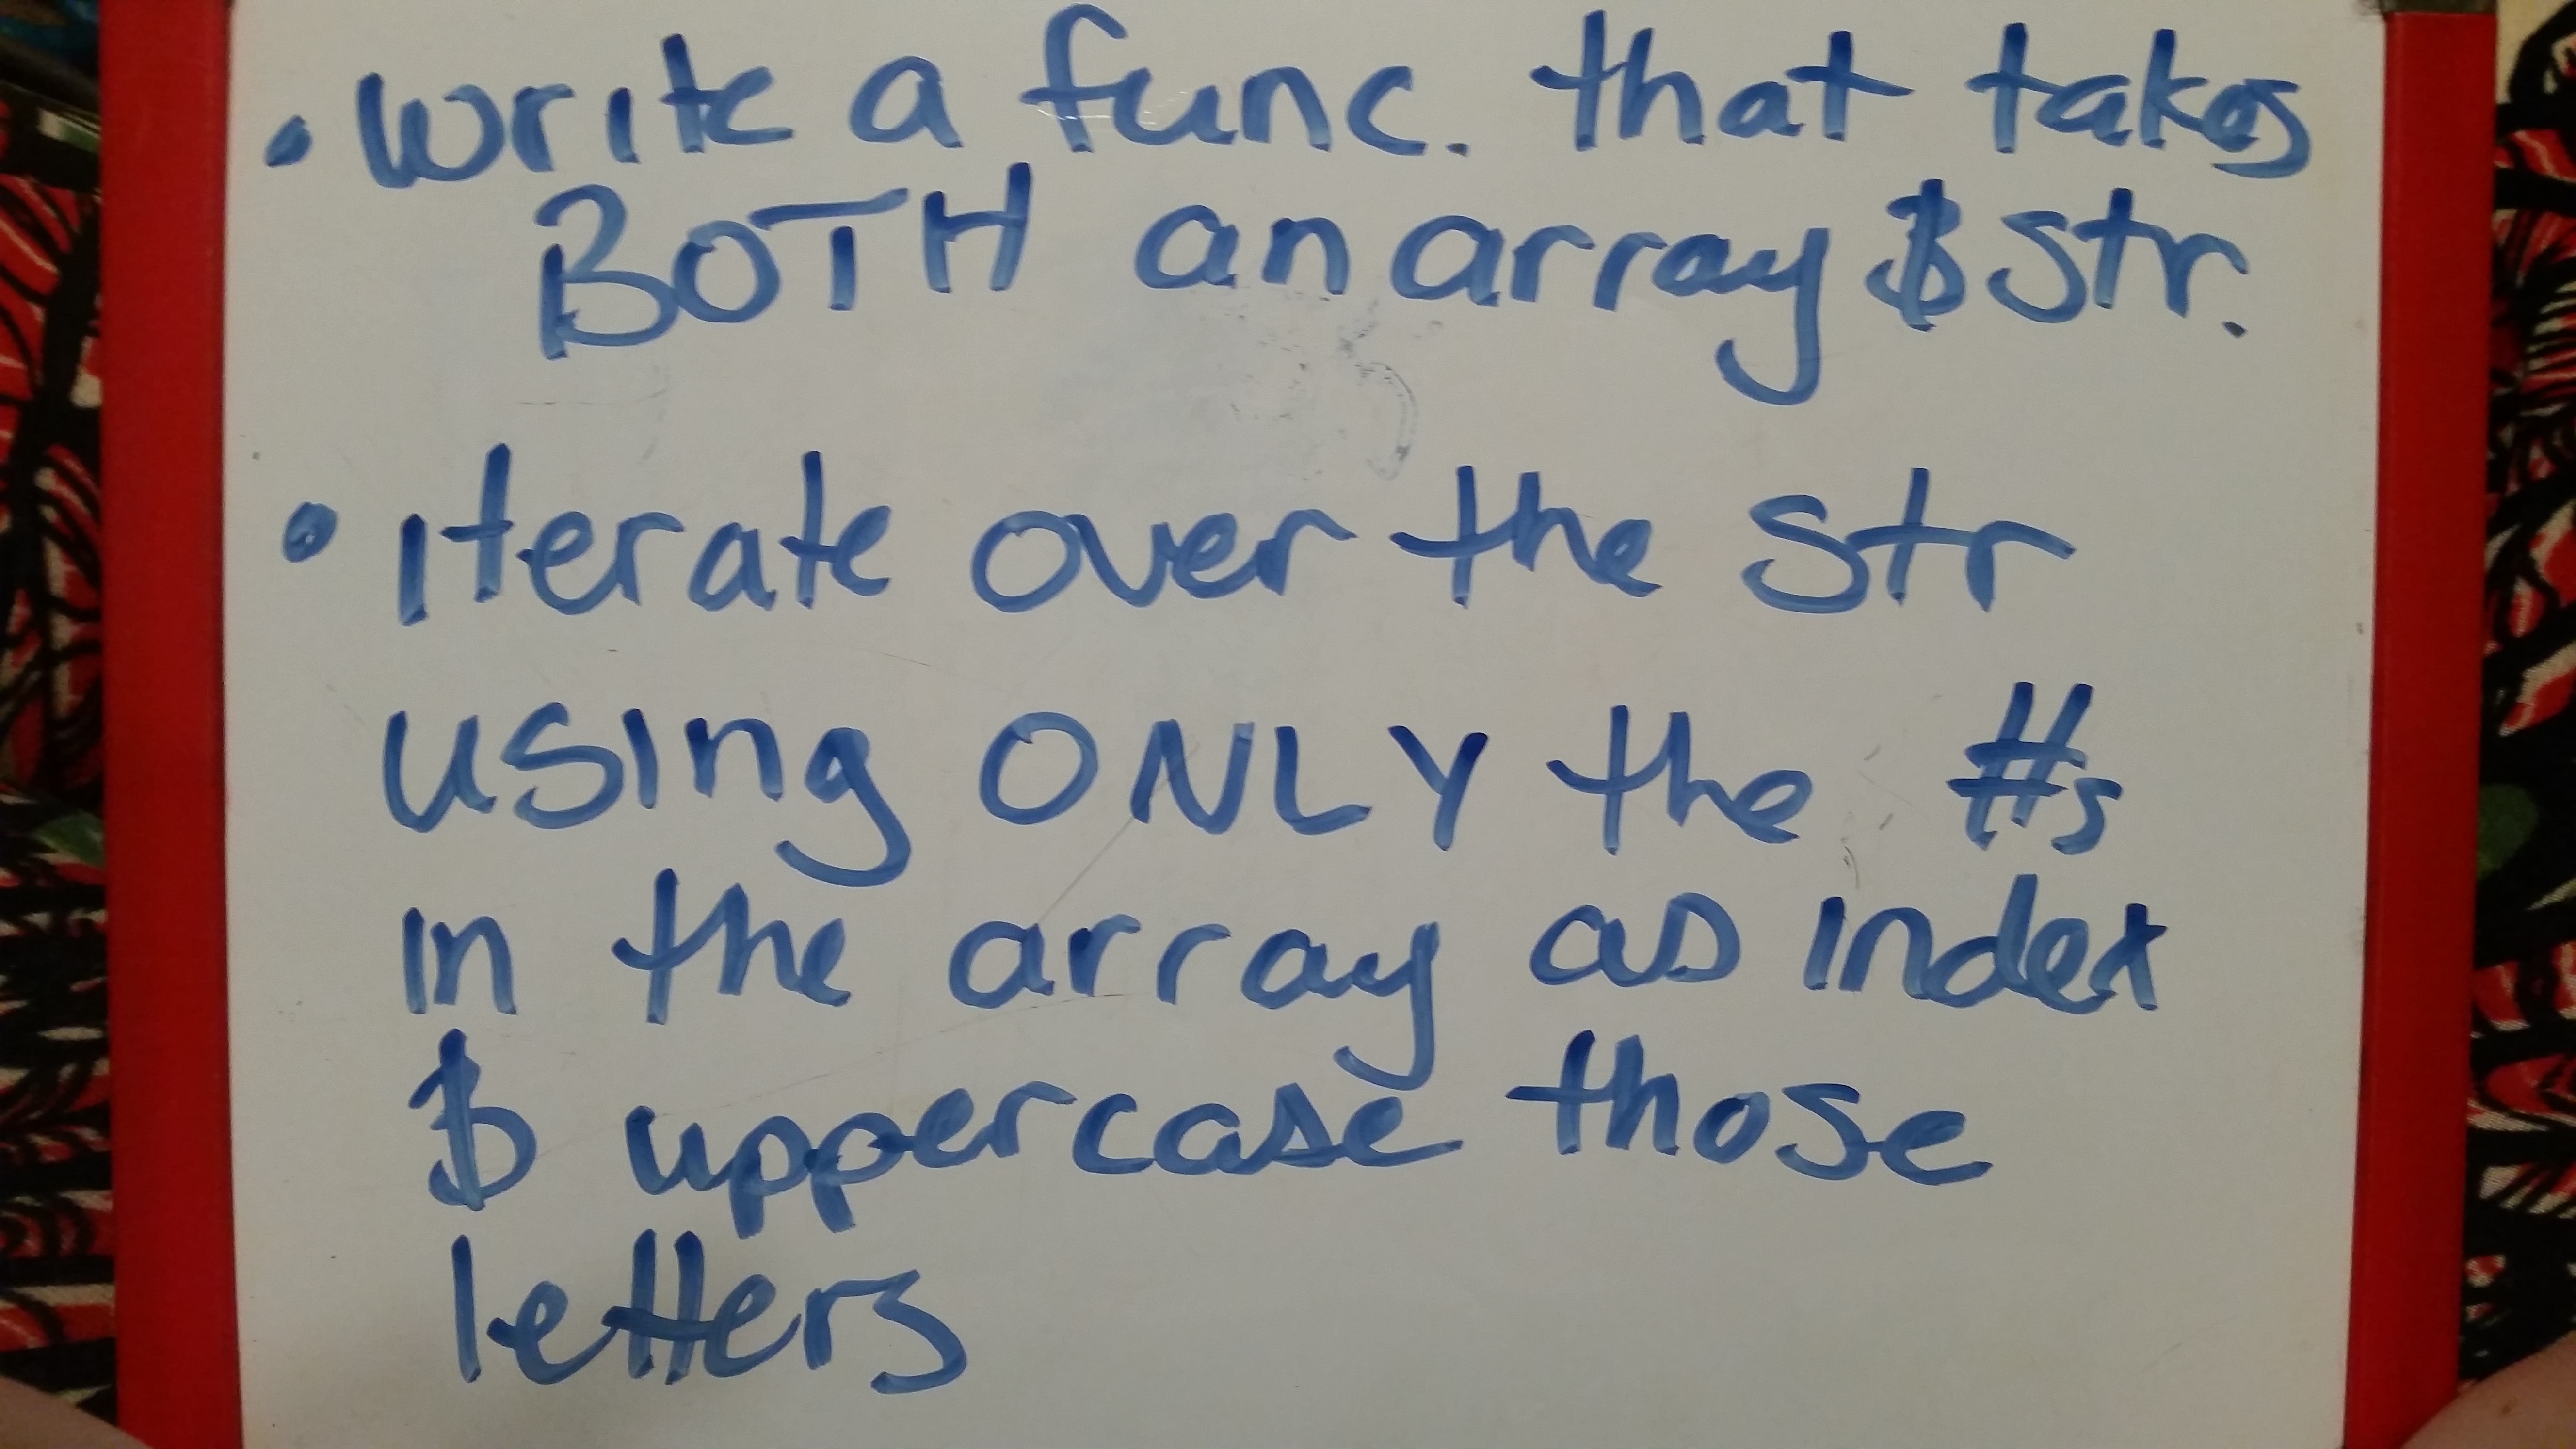 • Write a func. that takes
BOTH an array & str.
• iterate over the str
using ONLY the #s
in the array as index
& uppercase those
letters